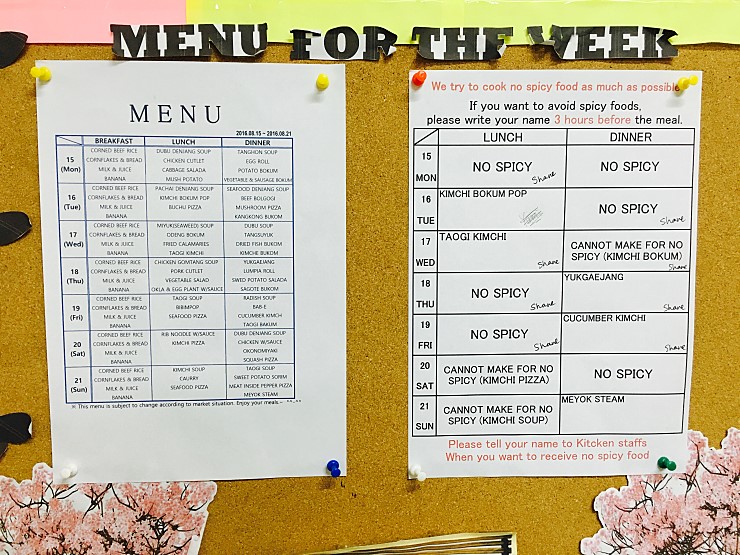 MENU FOR THE WEEK
MENU
2016.08.15 ~ 2016.08.21
BREAKFAST LUNCH DINNER
15 (Mon)
CORNED BEEF RICE DUBU DENJANG SOUP TANGHON SOUP
CORNFLAKES & BREAD CHICKEN CUTLET EGG ROLL
MILK & JUICE CABBAGE SALADA POTATO BOKUM
BANANA MUSH POTATO VEGETABLE & SAUSAGE BOKUM
16 (Tue)
CORNED BEEF RICE PACHAI DENJANG SOUP SEAFOOD DENJANG SOUP
CORNFLAKES & BREAD KIMCHI BOKUM POP BEEF BOLGOGI
MILK & JUICE BUCHU PIZZA MUSHROOM PIZZA
BANANA KANGKONG BUKOM
17 (Wed)
CORNED BEEF RICE MIYUK(SEAWEED) SOUP DUBU SOUP
CORNFLAKES & BREAD ODENG BOKUM TANGSUYUK
MILK & JUICE FRIED CALAMARIES DRIED FISH BUKOM
BANANA TAOGI KIMCHI KIMCHE BUKOM
18 (Thu)
CORNED BEEF RICE CHICKEN GOMTANG SOUP YUKGAEJANG
CORNFLAKES & BREAD PORK CUTLET LUMPIA ROLL
MILK & JUICE VEGETABLE SALAD SWED POTATO SALADA
BANANA OKLA & EGG PLANT W/SAUCE SAGOTE BUKOM
19 (Fri)
CORNED BEEF RICE TAOGI SOUP RADISH SOUP
CORNFLAKES & BREAD BIBIMPOP BAB-E
MILK & JUICE SEAFOOD PIZZA CUCUMBER KIMCH
BANANA TAOGI BAKUM
20 (Sat)
CORNED BEEF RICE RIB NOODLE W/SAUCE DUBU DENJANG SOUP
CORNFLAKES & BREAD KIMCHI PIZZA CHICKEN W/SAUCE
MILK & JUICE OKONOMIYAKI
BANANA SQUASH PIZZA
21 (Sun)
CORNED BEEF RICE KIMCHI SOUP TAOGI SOUP
CORNFLAKES & BREAD CAURRY SWEET POTATO SORIM
MILK & JUICE SEAFOOD PIZZA MEAT INSIDE PEPPER PIZZA
BANANA MEYOK STEAM
※ This menu is subject to change according to market situation. Enjoy your meals.~ ^^_^^
We try to cook no spicy food as much as possible
If you want to avoid spicy foods,
please write your name 3 hours before the meal.
LUNCH DINNER
15 MON
NO SPICY NO SPICY
Shane
16 TUE
KIMCHI BOKUM POP
NO SPICY
Shane
17 WED
TAOGI KIMCHI
CANNOT MAKE FOR NO
SPICY (KIMCHI BOKUM)
Shane Shane
18 THU
YUKGAEJANG
NO SPICY
Shane Shane
19 FRI
CUCUMBER KIMCHI
NO SPICY
Shane Shane
20 SAT
CANNOT MAKE FOR NO
SPICY (KIMCHI PIZZA)
NO SPICY
21 SUN
MEYOK STEAM
CANNOT MAKE FOR NO
SPICY (KIMCHI SOUP)
Please tell your name to Kitcken staffs
When you want to receive no spicy food